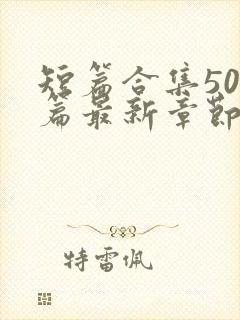 短篇合集50
篇最新章节
特雷佩